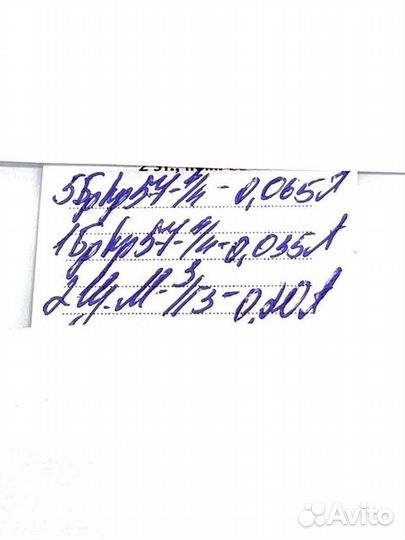 5БрКр57-4/4-0,065Л
1БрКр57-4/4-0,035Л
2И.М-3/Г3-0,20Л
Avito